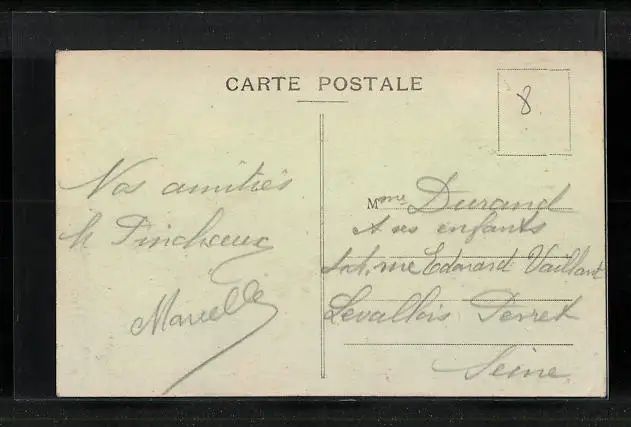 CARTE POSTALE
8
Nos amitiés
Pincheux
Marcelle
Mme Durand
et ses enfants
rue Edouard Vaillant
Levallois Perret
Seine